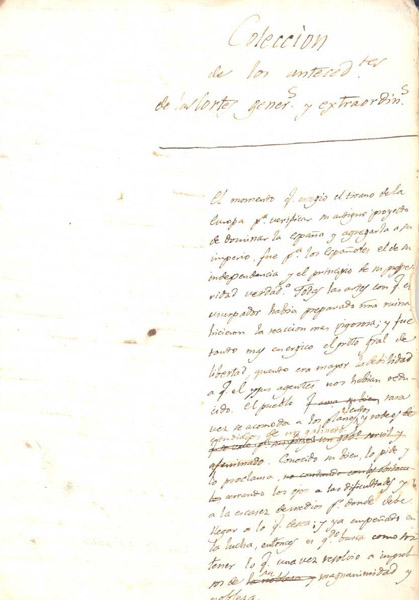 Coleccion
de los anteced.tes
de las Cortes gener.s y extraordin.s
El momento q.e eligio el tirano de la
Europa p.a verificar su antiguo proyecto
de dominar la España y agregarla a su
imperio, fue p.a los Españoles el de su
independencia y el principio de su prospe
ridad verdad.a Todas las artes con q.e el
usurpador habia preparado nra ruina
hicieron la reaccion mas vigorosa; y fue
tanto mas energico el grito gral de
libertad, quando era mayor la debilidad
a q.e el y sus agentes nos habian redu
cido. El pueblo q.e rara
vez se acomoda a los planes lentos y rodeos de
afeminado. Conocido su bien, lo pide y
lo proclama,
cerrando los ojos a las dificultades y
a la escasez de medios p.r donde debe
llegar a lo q.e desea; y ya empeñado en
la lucha, entonces es q.do busca como sos
tener lo q.e una vez resolvio a impul
sos de la nobleza magnanimidad y
nobleza.